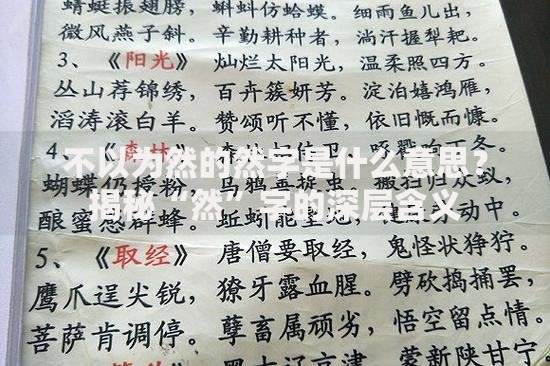 蜻蜓振翅膀, 蝌蚪仿蛤蟆。细雨鱼儿出,
微风燕子斜。辛勤耕种者, 淌汗握犁耙。
3、《阳光》灿烂太阳光, 温柔照四方。
丛山荐锦绣, 百卉簇妍芳。淀泊嬉鸿雁,
滔涛滚白羊。赞颂听不懂, 依旧慨而慷。
4、《森林》
不以为然的然字是什么意思?
蝴蝶仍授粉, 乌鸦喜捉虫。
揭秘“然”字的深层含义
酿蜜忽群蜂。蚯蚓能
5、《取经》唐僧要取经, 鬼怪状狰狞。
鹰爪逞尖锐, 獠牙露血腥。劈砍捣捅罢,
菩萨肯调停。孽畜属顽劣, 悟空留点情。
蒙新陕甘宁